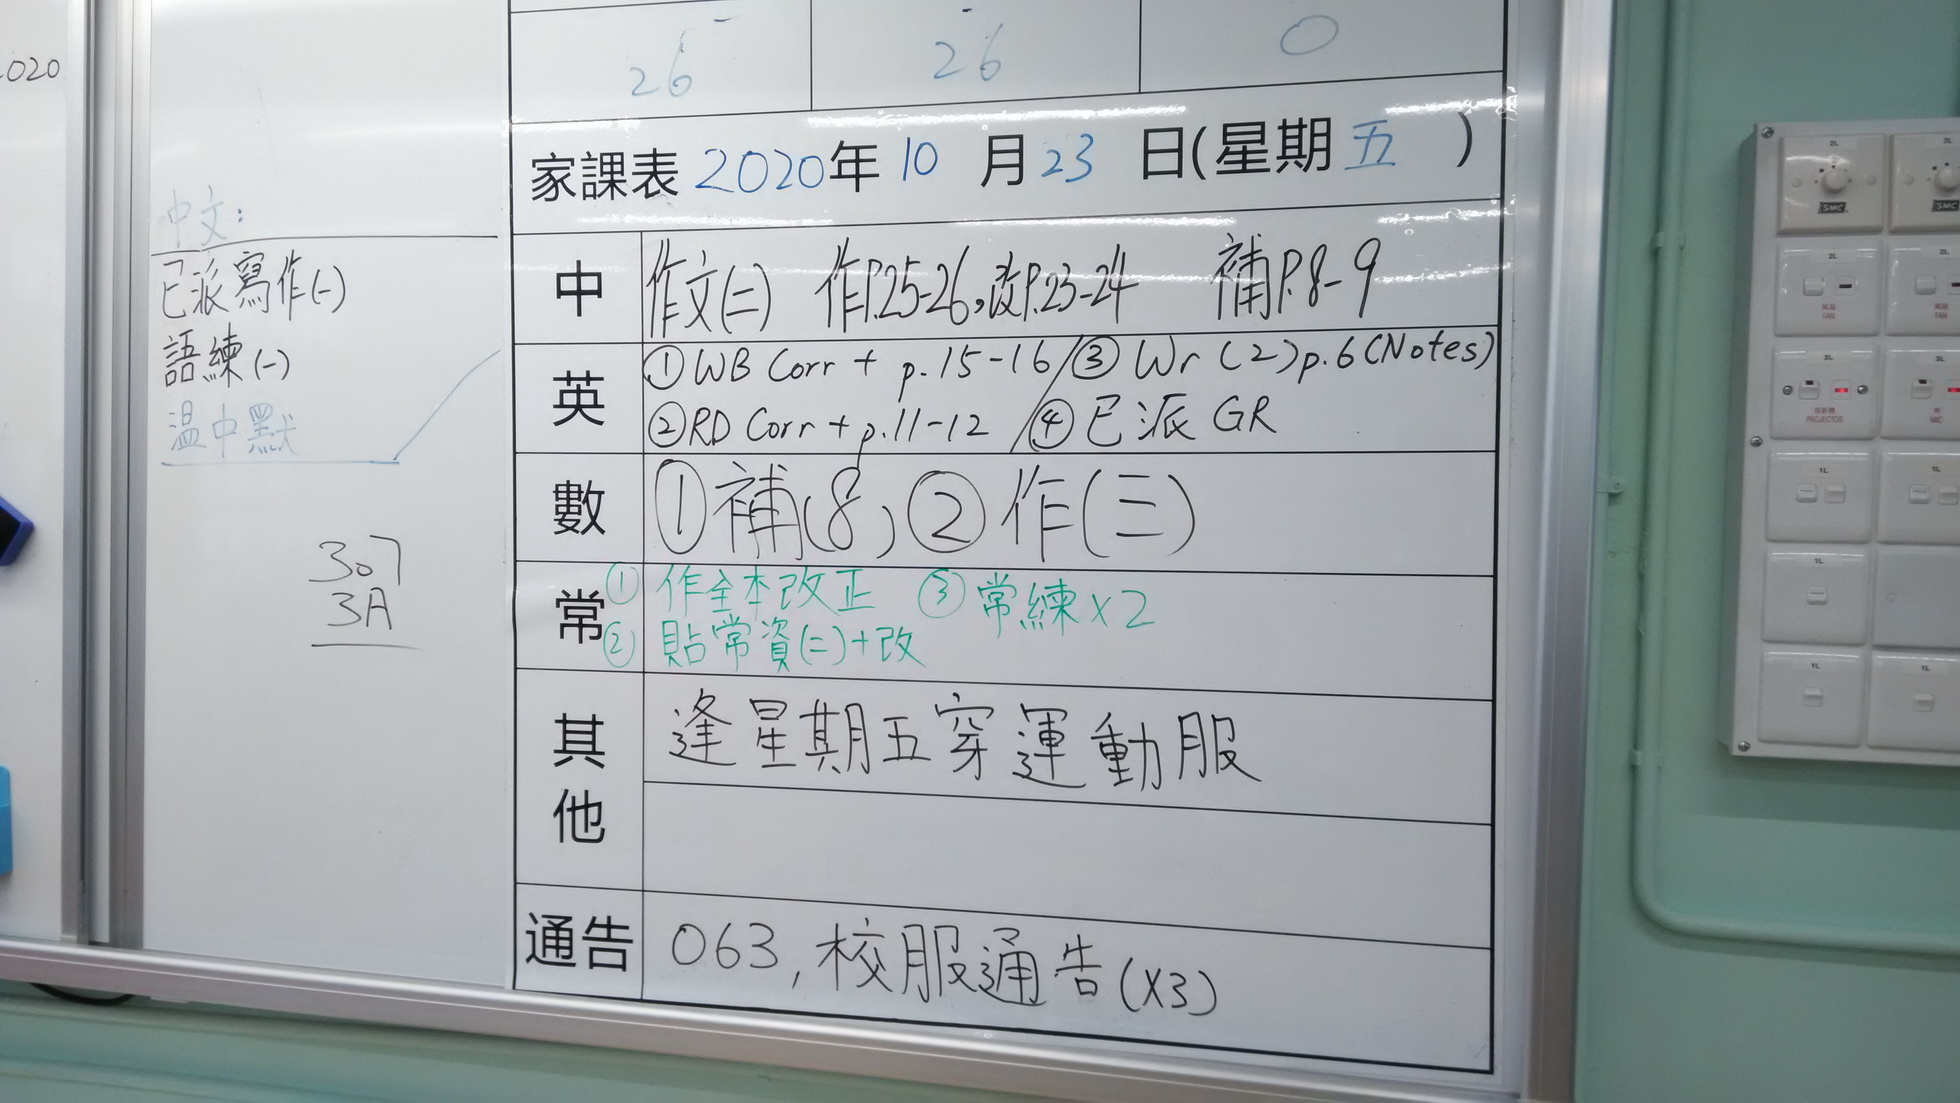 020
26
26
0
家課表 2020年 10 月 23 日(星期 五 )
中文:
已派寫作(一)
語練(一)
温中默
307
3A
中 作文(二) 作P.25-26,改P.23-24 補P.8-9
英 ① WB Corr + p.15-16 / ③ Wr (2) p.6 (Notes)
② RD Corr + p.11-12 / ④ 已派 GR
數 ① 補(8) ② 作(三)
常 ① 作全本改正 ③ 常練x2
② 貼常資(二)+改
其他 逢星期五穿運動服
通告 063, 校服通告(X3)
2L
2L
SMC
SMC
2L
2L
FAN
FAN
3L
3L
PROJECTOR
MIC
1L
1L
1L
1L
1L